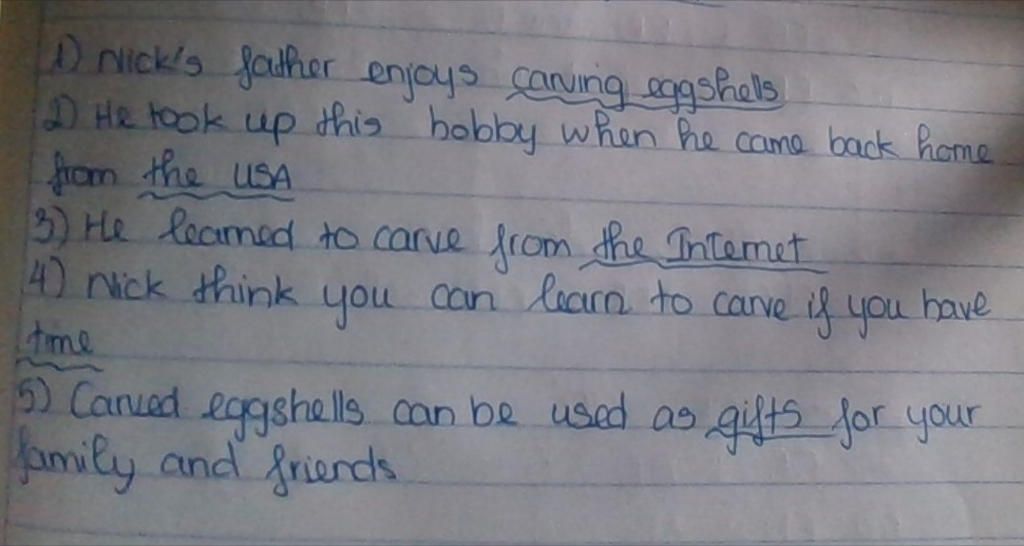 1) Nick's father enjoys carving eggshells
2) He took up this hobby when he came back home
from the USA
3) He learned to carve from the Internet
4) Nick think you can learn to carve if you have
time
5) Carved eggshells can be used as gifts for your
family and friends